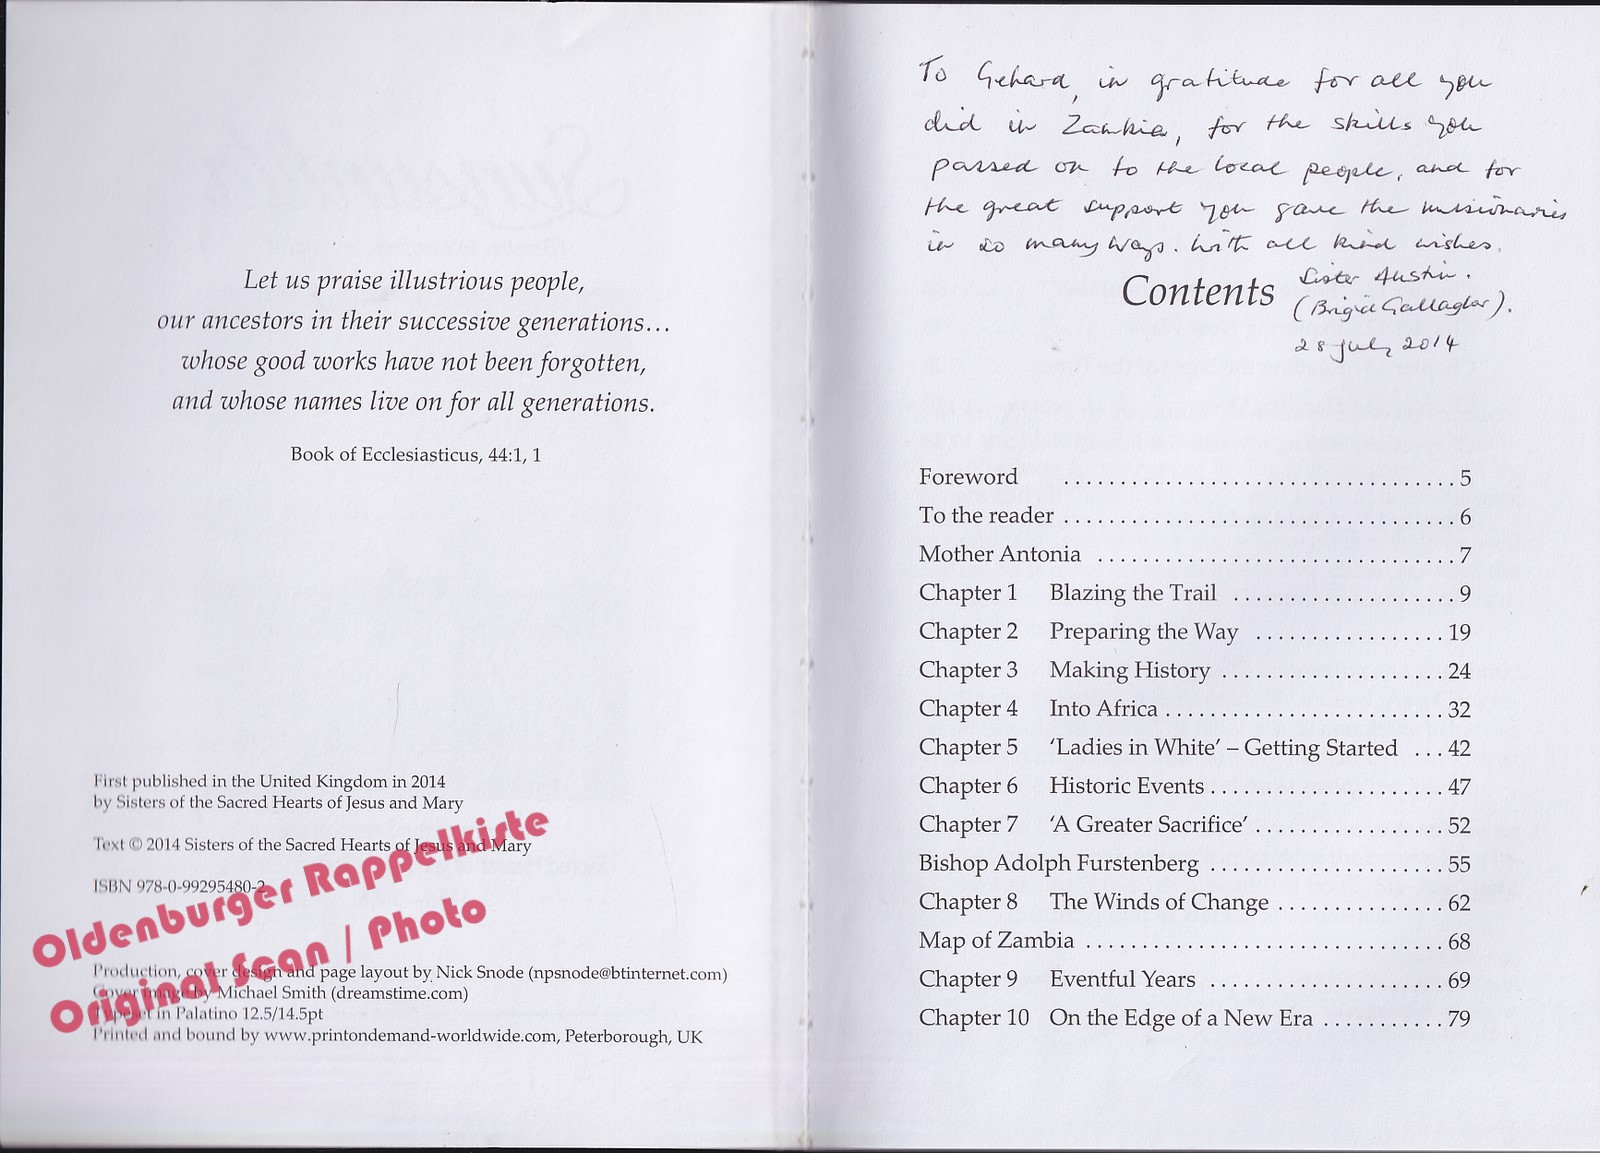 Let us praise illustrious people,
our ancestors in their successive generations…
whose good works have not been forgotten,
and whose names live on for all generations.
Book of Ecclesiasticus, 44:1, 1
First published in the United Kingdom in 2014
by Sisters of the Sacred Hearts of Jesus and Mary
Text © 2014 Sisters of the Sacred Hearts of Jesus and Mary
ISBN 978-0-99295480-2
Oldenburger Rappelkiste
Original Scan / Photo
Production, cover design and page layout by Nick Snode (npsnode@btinternet.com)
Cover image by Michael Smith (dreamstime.com)
Typeset in Palatino 12.5/14.5pt
Printed and bound by www.printondemand-worldwide.com, Peterborough, UK
To Gehard, in gratitude for all you
did in Zambia, for the skills you
passed on to the local people, and for
the great support you gave the missionaries
in so many ways. With all kind wishes.
Sister Austin.
(Brigid Gallagher).
28 July 2014
Contents
Foreword ..... 5
To the reader ..... 6
Mother Antonia ..... 7
Chapter 1 Blazing the Trail ..... 9
Chapter 2 Preparing the Way ..... 19
Chapter 3 Making History ..... 24
Chapter 4 Into Africa ..... 32
Chapter 5 ‘Ladies in White’ – Getting Started ... 42
Chapter 6 Historic Events ..... 47
Chapter 7 ‘A Greater Sacrifice’ ..... 52
Bishop Adolph Furstenberg ..... 55
Chapter 8 The Winds of Change ..... 62
Map of Zambia ..... 68
Chapter 9 Eventful Years ..... 69
Chapter 10 On the Edge of a New Era ..... 79